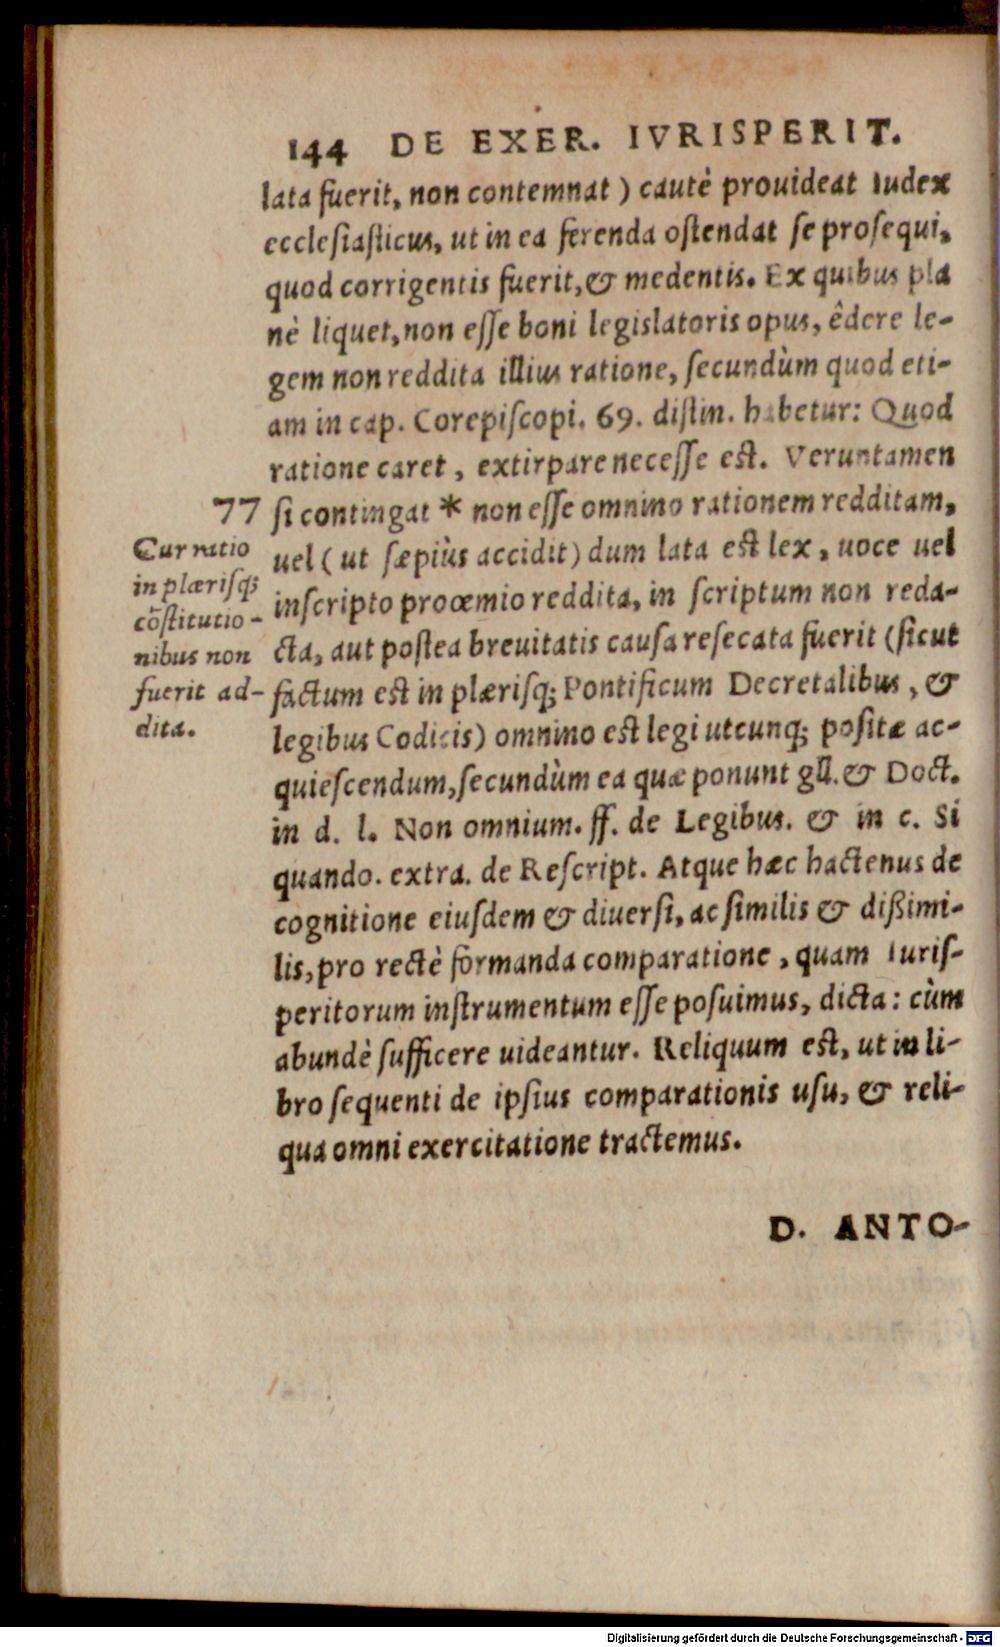 144 DE EXER. IVRISPERIT.
lata fuerit, non contemnat) cautè prouideat Iudex
ecclesiasticus, ut in ea ferenda ostendat se prosequi,
quod corrigentis fuerit, & medentis. Ex quibus pla
nè liquet, non esse boni legislatoris opus, êdere le-
gem non reddita illius ratione, secundùm quod eti-
am in cap. Corepiscopi. 69. distin. habetur: Quod
ratione caret, extirpare necesse est. Veruntamen
77 si contingat * non esse omnino rationem redditam,
uel (ut sæpiùs accidit) dum lata est lex, uoce uel
inscripto proœmio reddita, in scriptum non reda-
cta, aut postea breuitatis causa resecata fuerit (sicut
factum est in plærisq; Pontificum Decretalibus, &
legibus Codicis) omnino est legi utcunq; positæ ac-
quiescendum, secundùm ea quæ ponunt gll. & Doct.
in d. l. Non omnium. ff. de Legibus. & in c. Si
quando. extra. de Rescript. Atque hæc hactenus de
cognitione eiusdem & diuersi, ac similis & dißimi-
lis, pro rectè formanda comparatione, quam Iuris-
peritorum instrumentum esse posuimus, dicta: cùm
abundè sufficere uideantur. Reliquum est, ut in li-
bro sequenti de ipsius comparationis usu, & reli-
qua omni exercitatione tractemus.
Cur ratio
in plærisq;
cõstitutio-
nibus non
fuerit ad-
dita.
D. ANTO-
Digitalisierung gefördert durch die Deutsche Forschungsgemeinschaft - DFG